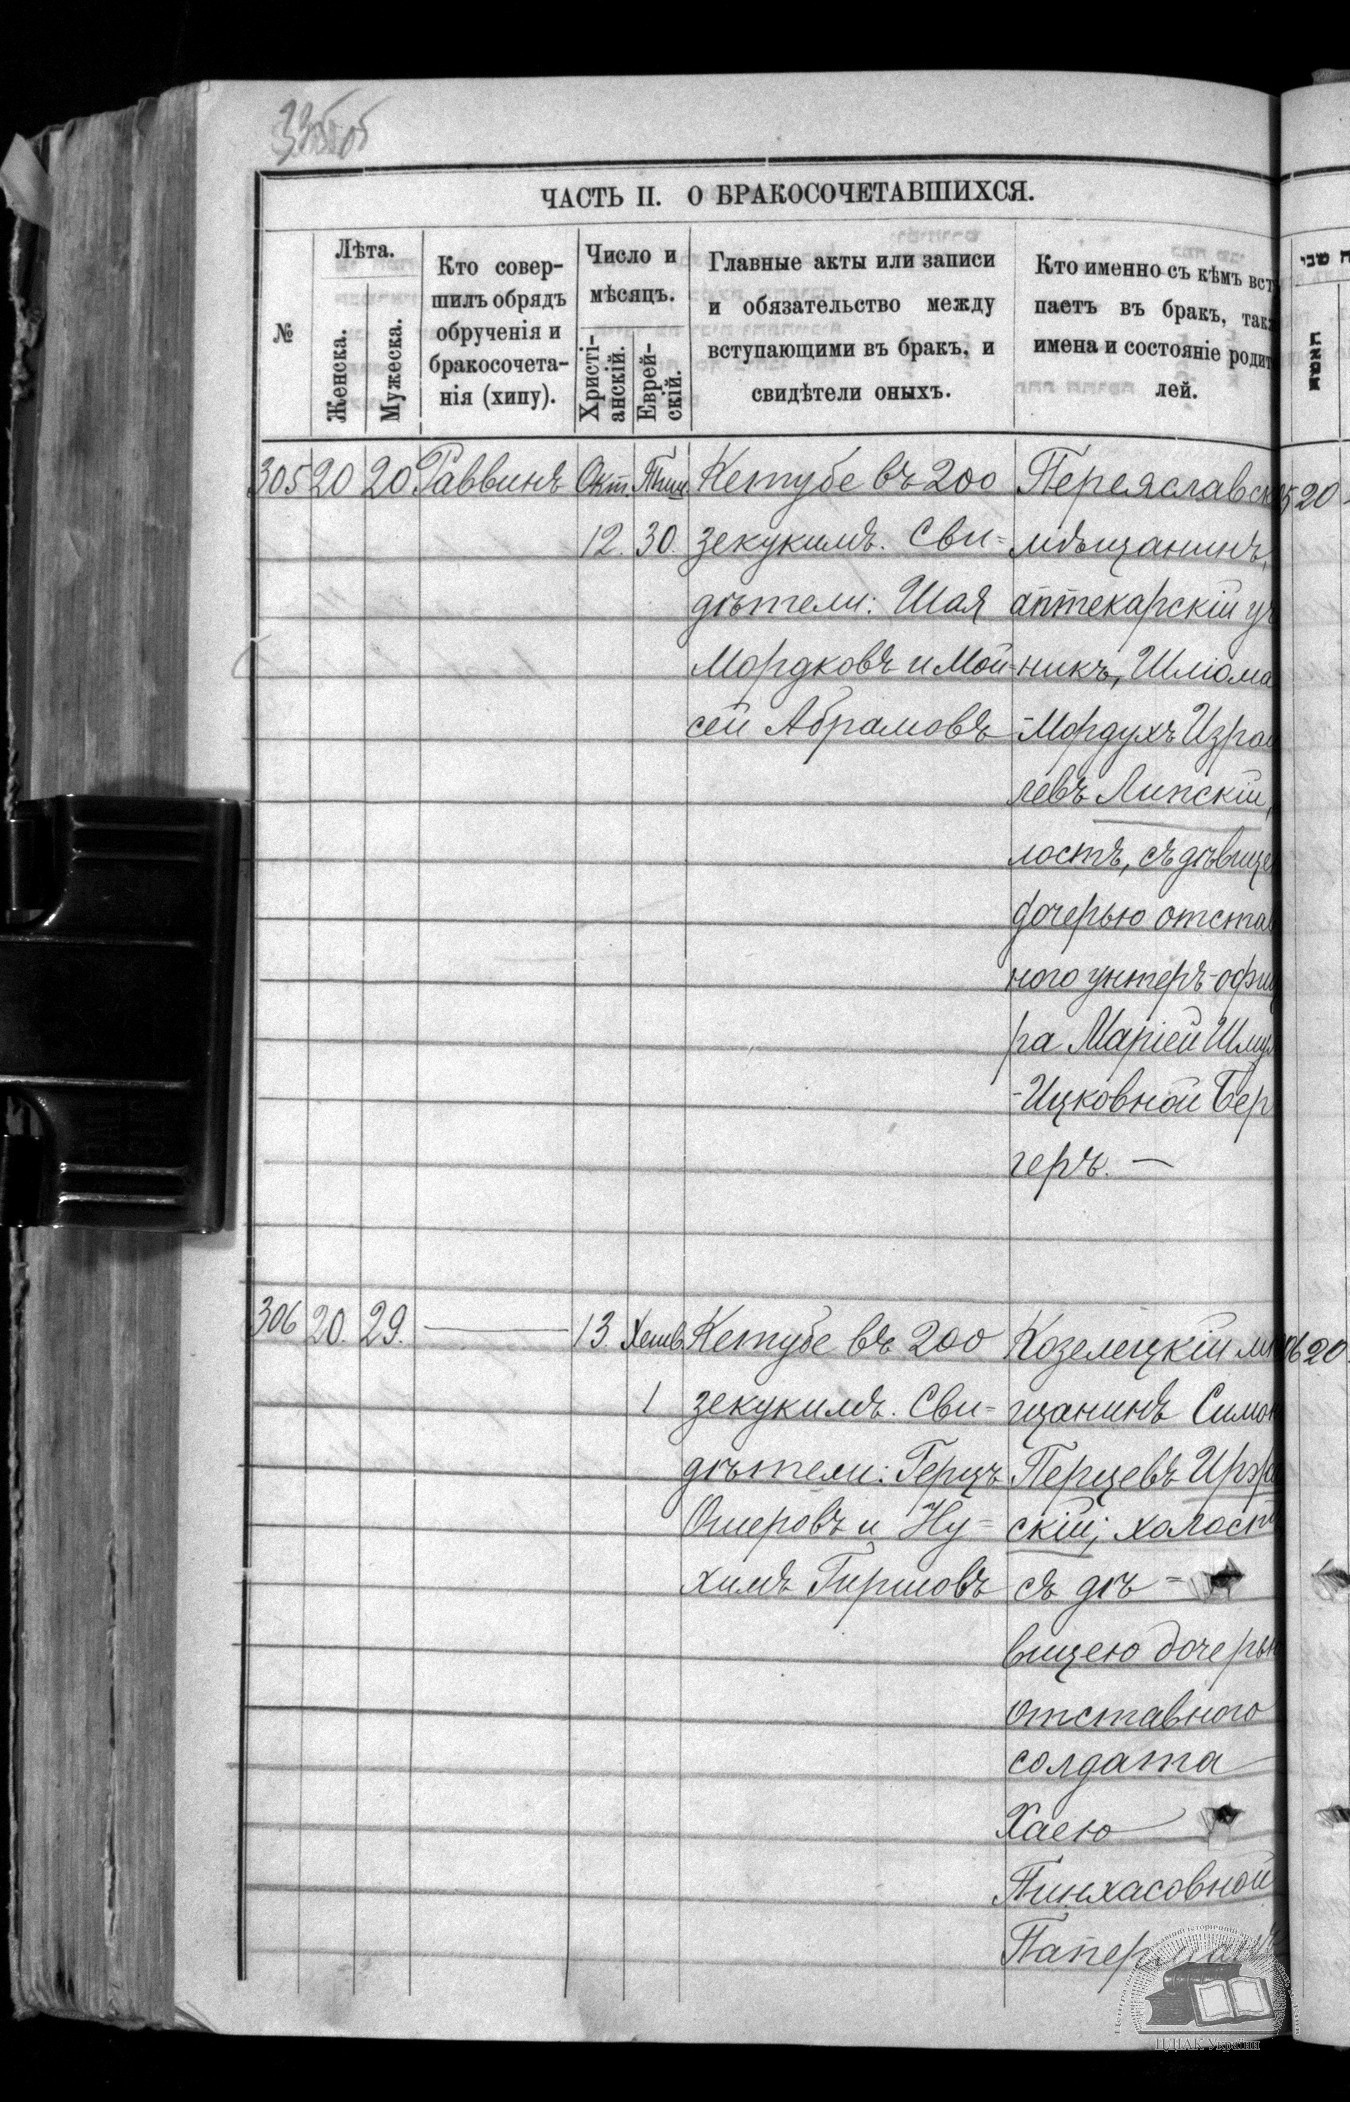 335об
ЧАСТЬ II. О БРАКОСОЧЕТАВШИХСЯ.
№
Лѣта.
Женска.
Мужеска.
Кто совер-
шилъ обрядъ
обрученія и
бракосочета-
нія (хипу).
Число и
мѣсяцъ.
Христі-
анскій.
Еврей-
скій.
Главные акты или записи
и обязательство между
вступающими въ бракъ, и
свидѣтели оныхъ.
Кто именно съ кѣмъ вст
паетъ въ бракъ, такж
имена и состояніе родит
лей.
305 20 20 Раввинъ Окт. Тиш.
12. 30.
Кетубе въ 200
зекукимъ. Сви-
дѣтели: Шая
Мордковъ и Мой-
сей Абрамовъ
Переяславск
мѣщанинъ,
аптекарскій уч
никъ, Шліома
-Мордухъ Израи
левъ Липскій,
лостъ, съ дѣвице
дочерью отстав
ного унтеръ-офиц
ра Маріей Шмул
-Ицковной Бер
геръ. —
306 20. 29. — 13. Хешв.
1
Кетубе въ 200
зекукимъ. Сви-
дѣтели: Герцъ
Ошеровъ и Ну-
химъ Гиршовъ
Козелецкій мѣ
щанинъ Симон
Перцевъ Иржа
скій; холост
съ дѣ-
вицею дочерью
отставного
солдата
Хаею
Пинхасовной
Паперман
5 20
06 20.
ЦДІАК України